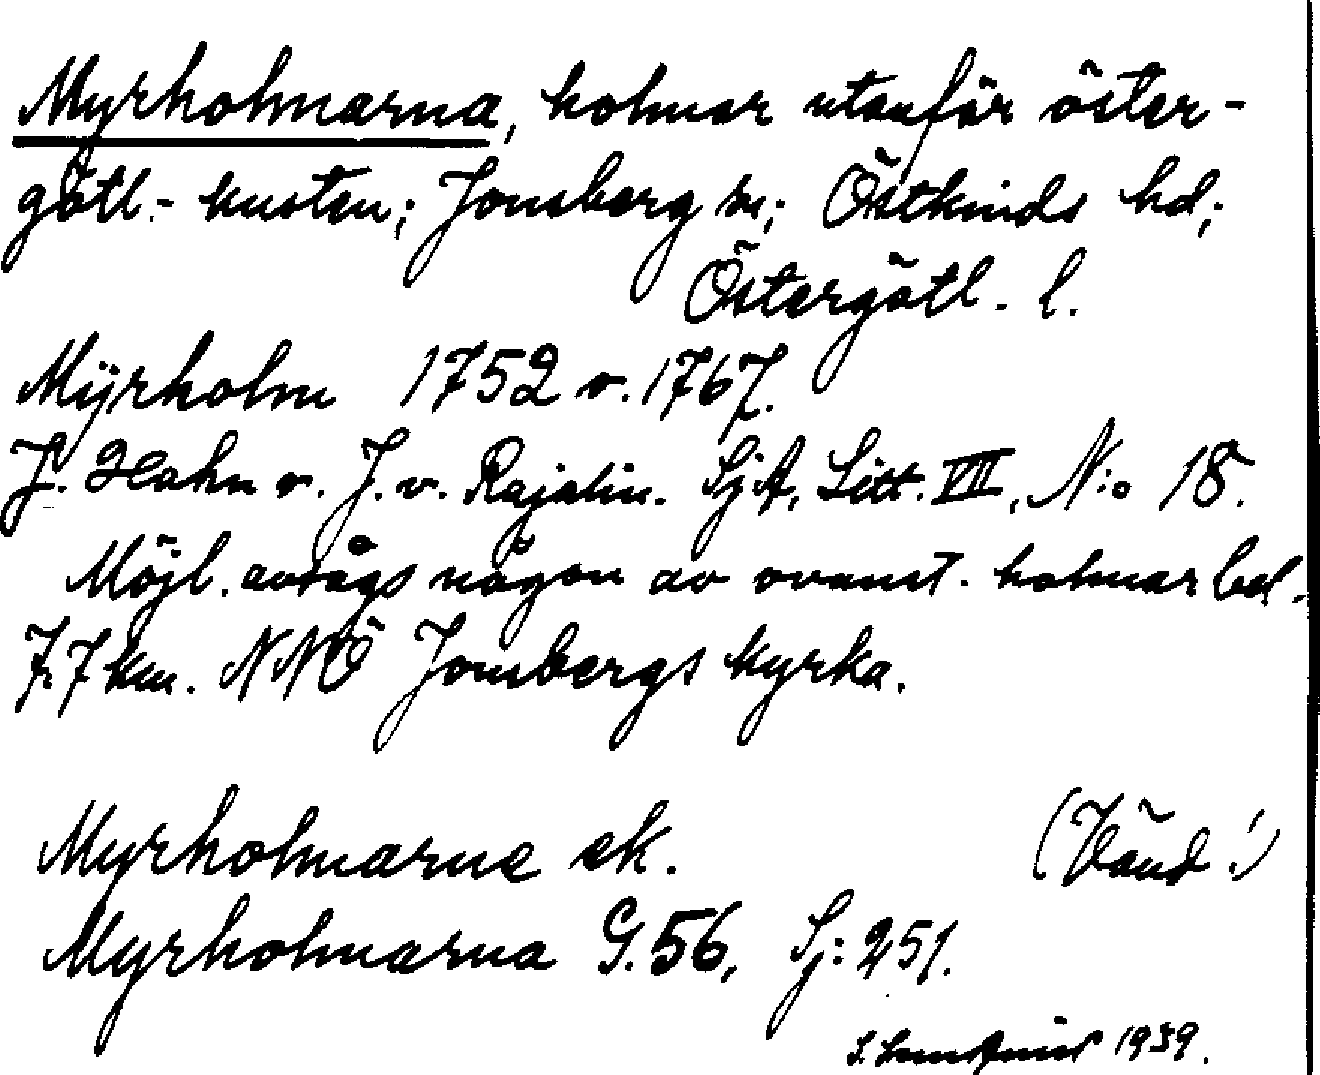 Myrholmarna, holmar utanför öster-
götl.- kusten; Jonsberg sn; Östkinds hd;
Östergötl. l.
Mÿrholm 1752 o. 1767.
J. Hahn o. J. v. Rajalin. SjA, Litt. VII, N:o 18.
Möjl. avsågs någon av ovanst. holmar bel.
7,7 km. NNÖ Jonsbergs kyrka.
Myrholmarne ek. (Vänd!)
Myrholmarna G. 56, Sj: 251.
1939.